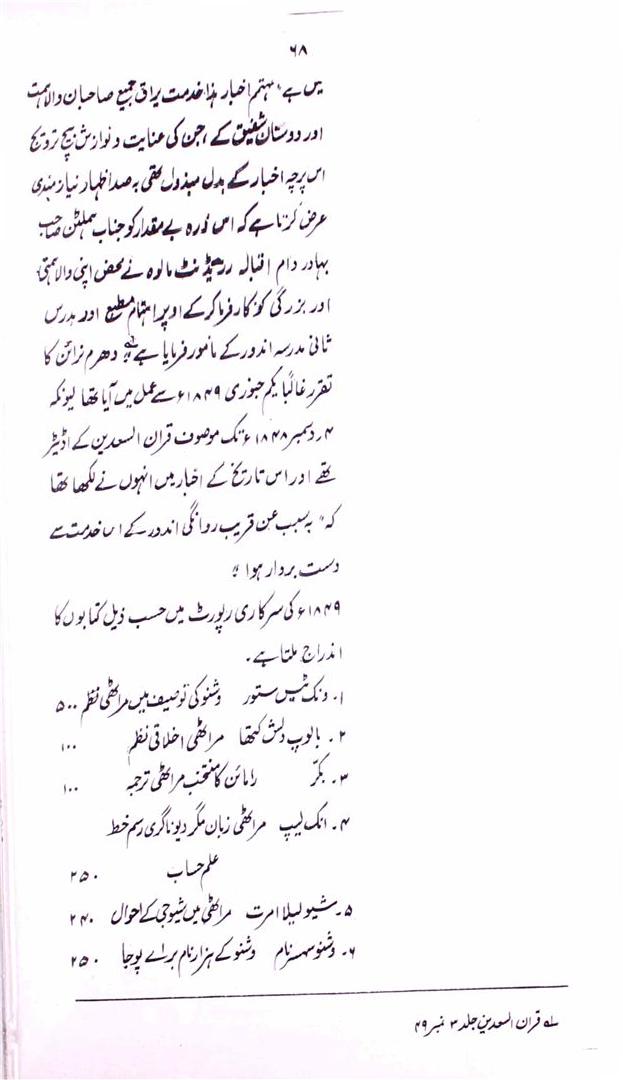 ۶۸
میں ہے، مہتمم اخبار ہذا خدمت براق جمیع صاحبان والا ہمت
اور دوستان شفیق کے، جن کی عنایت و نوازش بیچ ترویج
اس پرچہ اخبار کے بدل مبذول تھی بہ صد اظہار نیاز مندی
عرض کرتا ہے کہ اس ذرہ بے مقدار کو جناب ہملٹن صاحب
بہادر دام اقبالہ رزیڈنٹ مالوہ نے محض اپنی والا ہمتی
اور بزرگی کو کار فرما کر کے اوپر اہتمام مطبع اور مدرس
ثانی مدرسہ اندور کے مامور فرمایا ہے" دھرم نرائن کا
تقرر غالباً یکم جنوری ۱۸۴۹ء سے عمل میں آیا تھا کیونکہ
۴ر دسمبر ۱۸۴۸ء تک موصوف قران السعدین کے اڈیٹر
تھے اور اس تاریخ کے اخبار میں انہوں نے لکھا تھا
کہ "بہ سبب عن قریب روانگی اندور کے اس خدمت سے
دست بردار ہوا"
۱۸۴۹ء کی سرکاری رپورٹ میں حسب ذیل کتابوں کا
اندراج ملتا ہے۔
۱۔ ونک ٹیس ستور وشنو کی توصیف میں مراٹھی نظم ۵۰۰
۲۔ بالوپ دلش کتھا مراٹھی اخلاقی نظم ۱۰۰
۳۔ بکر رامائن کا منتخب مراٹھی ترجمہ ۱۰۰
۴۔ انک لیپ مراٹھی زبان مگر دیوناگری رسم خط
علم حساب ۲۵۰
۵۔ شیو لیلا امرت مراٹھی میں شیوجی کے احوال ۲۴۰
۶۔ وشنو سہسر نام وشنو کے ہزار نام براے پوجا ۲۵۰
لہ قران السعدین جلد ۳ نمبر ۴۹